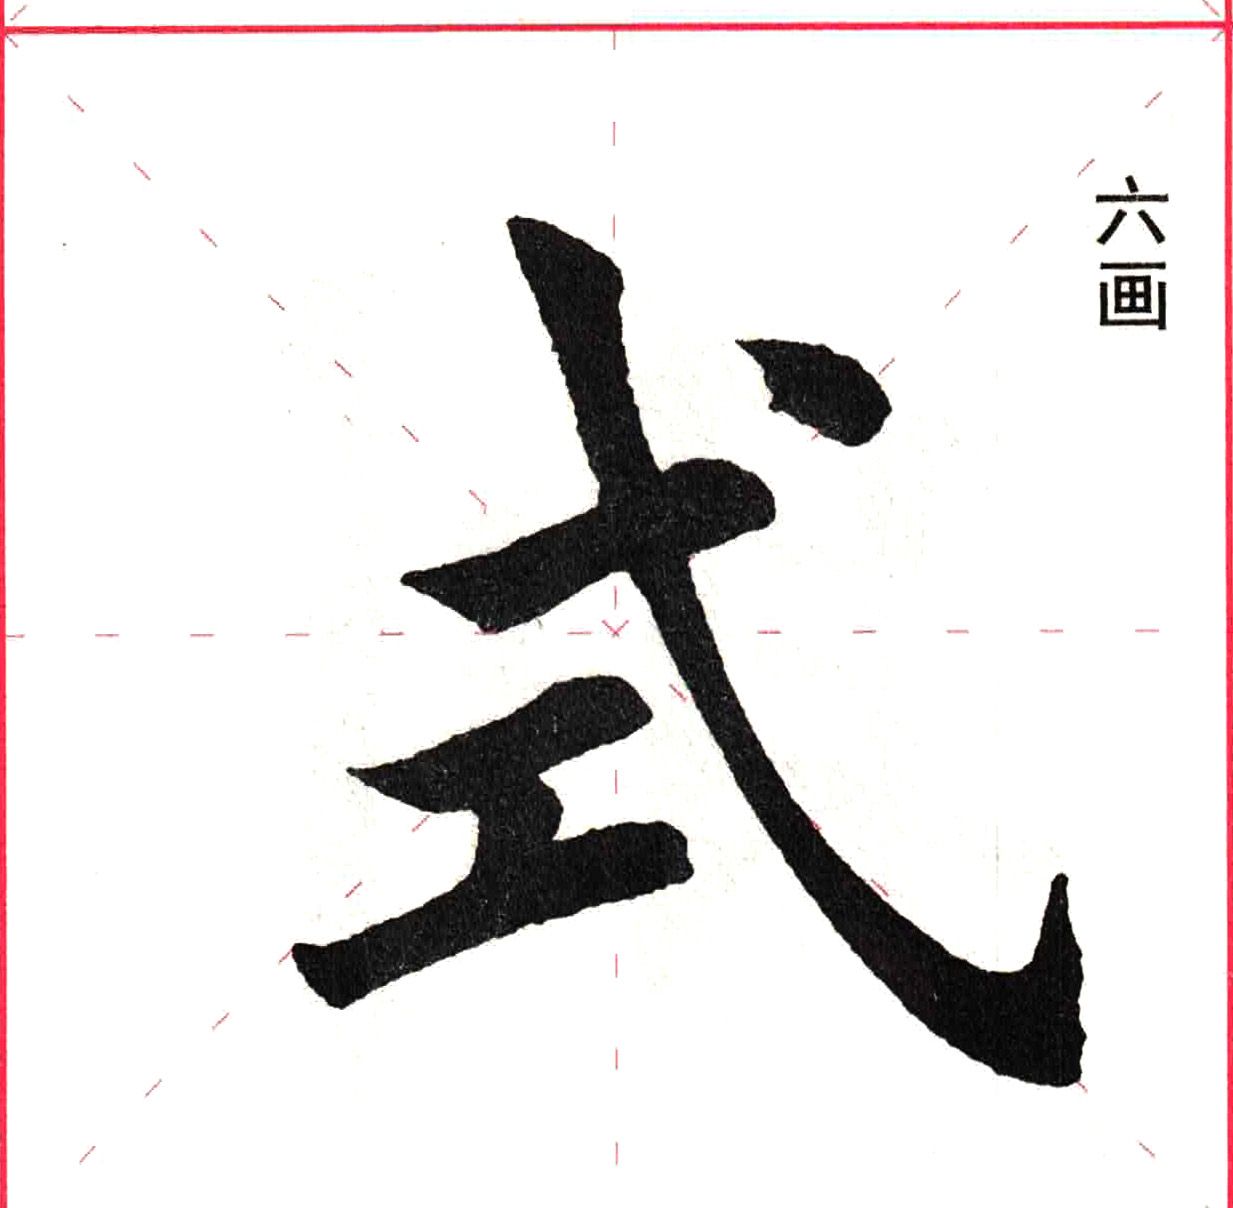 六画
式